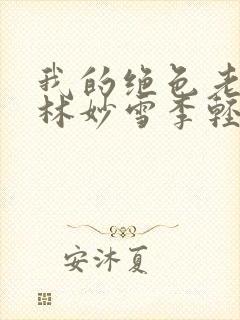 我的绝色老
林妙雪季轻
安沐夏